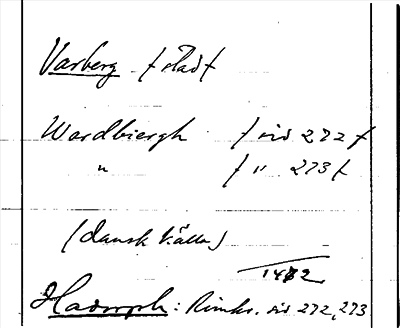 Varberg / stad /
Wardbiergh / sid 272 /
" / " 273 /
(dansk källa)
1482
Hadorph: Rimkr. sid 272, 273